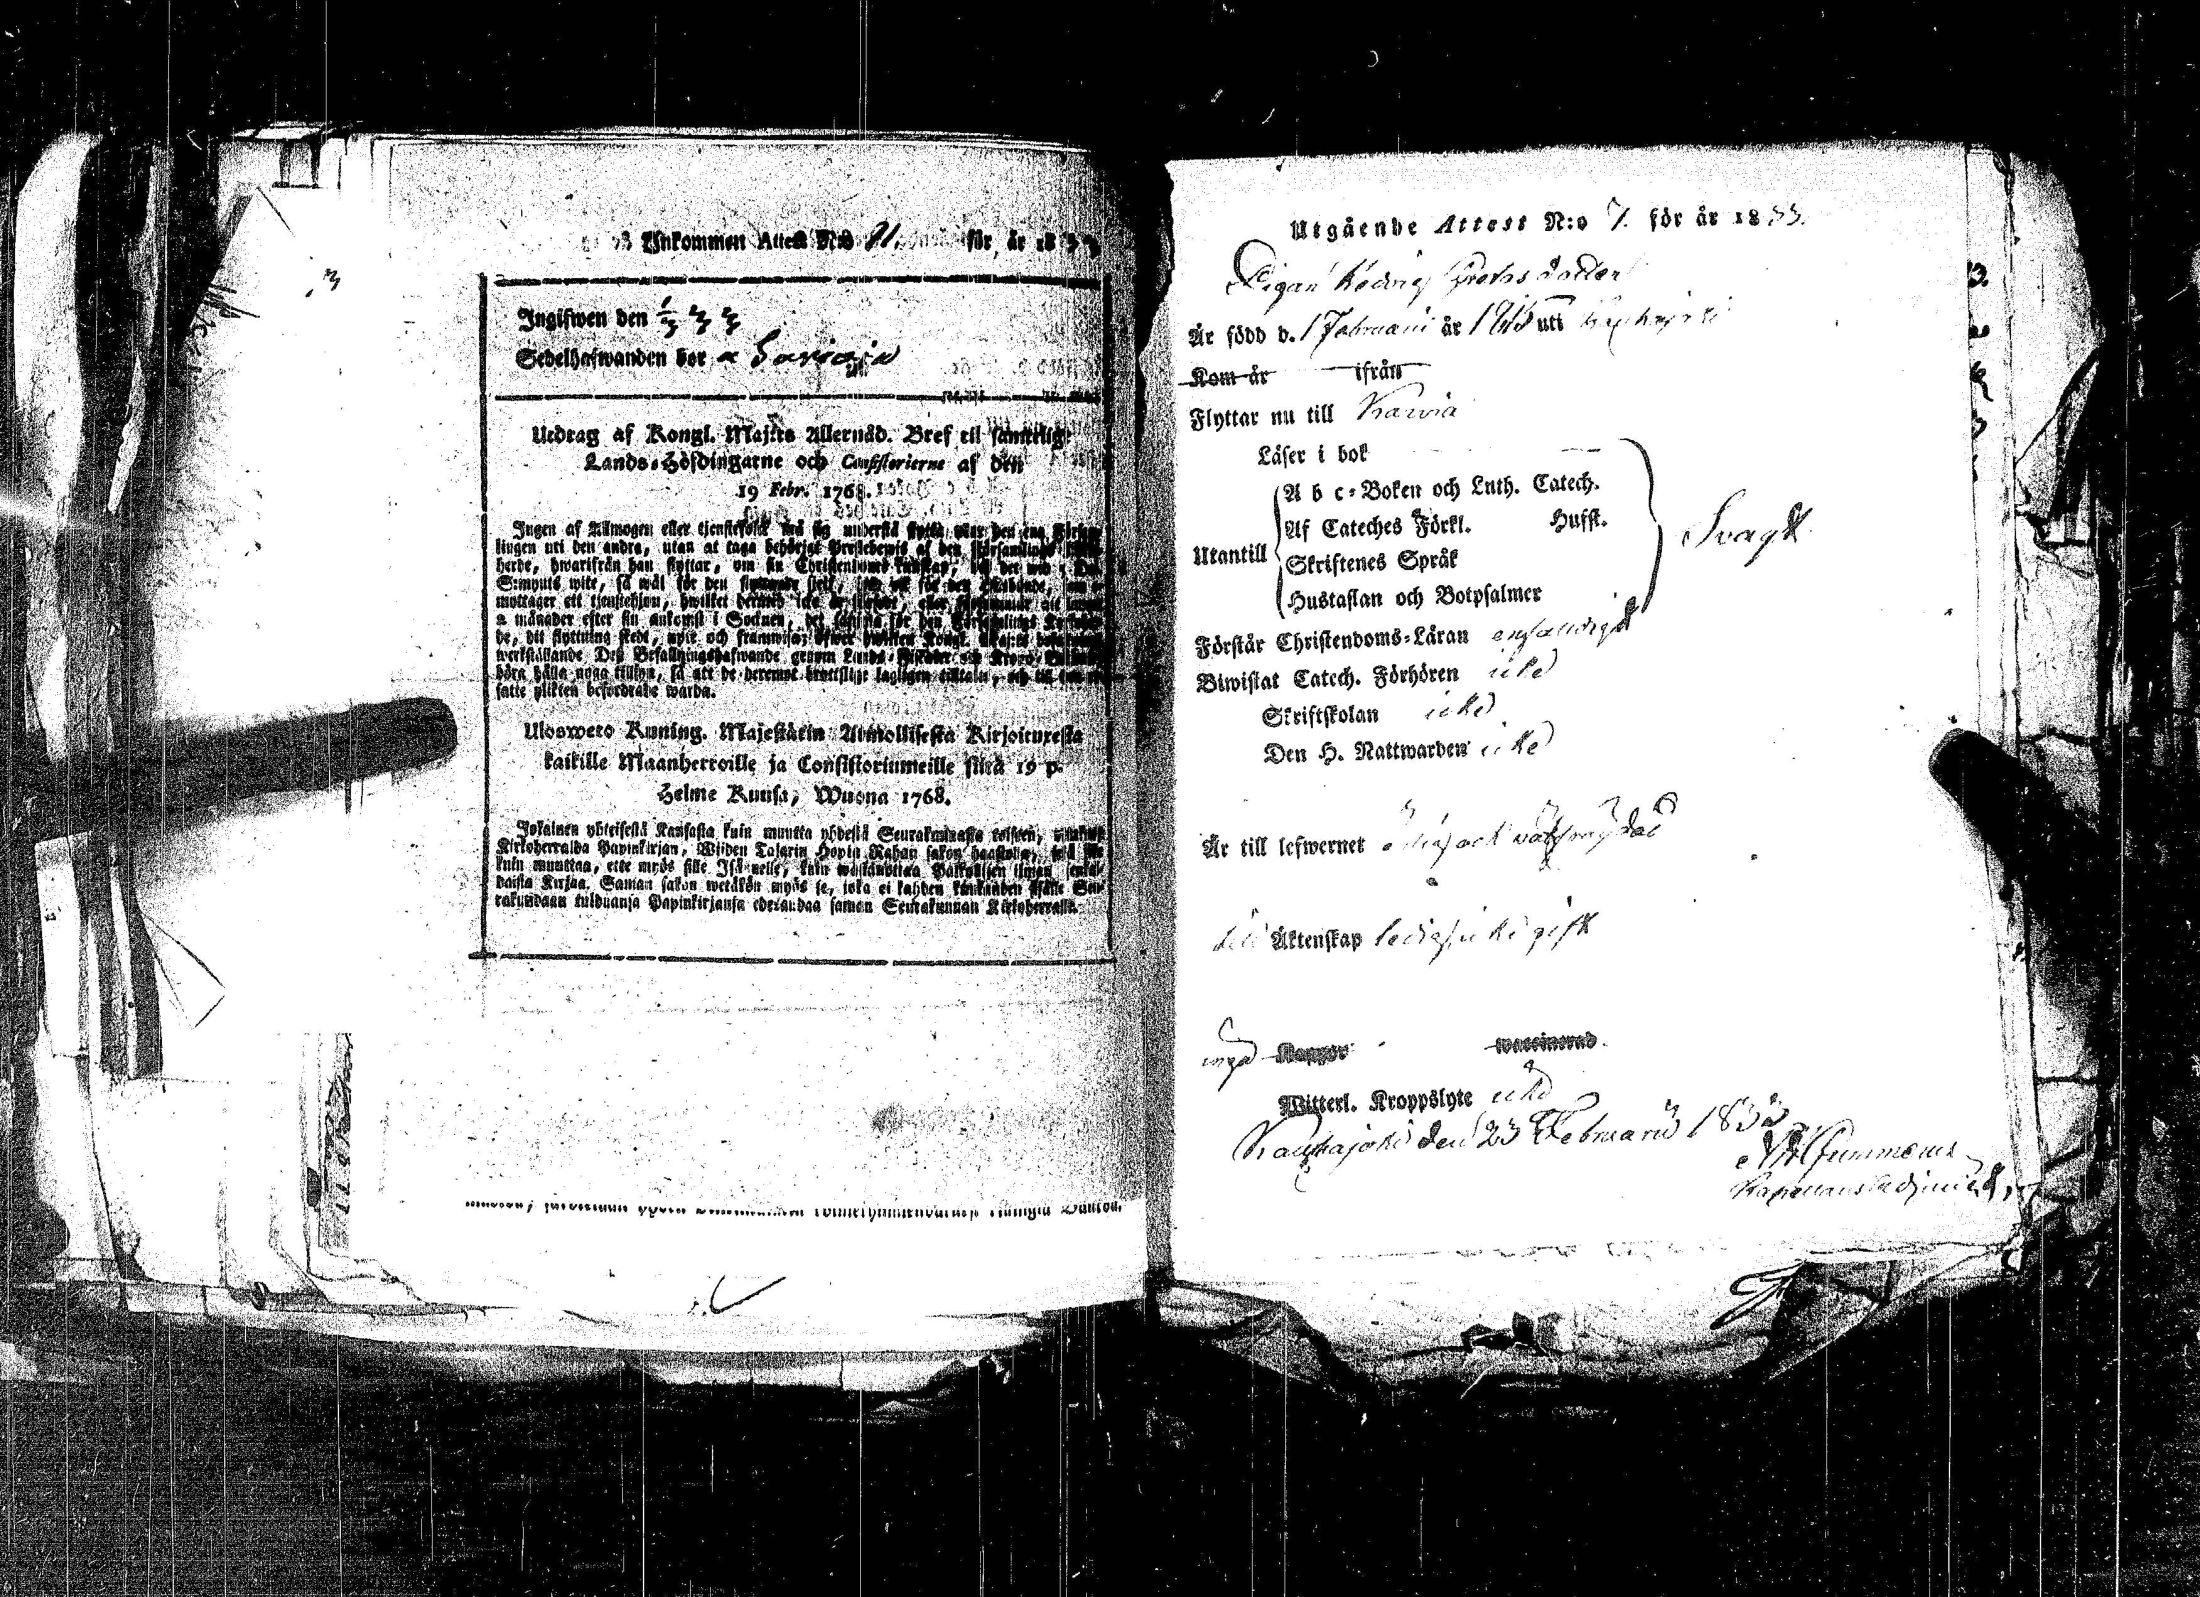 Inkommen Attest N:o 21. för år 1833
Ingifwen den 1/3 33
Sedelhafwanden bor a
Utdrag af Kongl. Maj:ts Allernåd. Bref til samtelige
Lands-Höfdingarne och Consistorierne af den
19 Febr. 1768.
Ingen af Allmogen eller tjenstefolk må sig understå flytta utur den ena Försam-
lingen uti den andra, utan at taga behörigt Prestebewis af den Församlings
herde, hwarifrån han flyttar, om sin Christendoms kunskap, och det wid 5 Dal.
S:mynts wite, så wäl för den flyttande sjelf, som ock för den
mottager ett tjenstehjon, hwilket dermed icke är
2 månader efter sin ankomst i Socknen, det samma för den Församlings Kyrkoher-
de, dit flyttning skedt, upte och framwisa; öfwer hwilket Kongl. Maj:ts
werkställande Deß Befallningshafwande genom Lands-Fiskaler och
böra hålla noga tillsyn, så att de deremot brottslige lagligen tilltalas, och til den ut-
satte plikten befordrade warda.
Uloswero Kuning. Majestätin Armollisesta Kirjoituxesta
kaikille Maanherroille ja Consistoriumeille siitä 19 p.
Helme Kuusa, Wuona 1768.
Jokainen yhteisestä Kansasta kuin muutta yhdestä Seurakunnasta toiseen,
Kirkoherralda Papinkirjan, Wijden Talarin Hopia Rahan sakon haastolla, sekä se
kuin muuttaa, ette myös sille Isännelle, kuin wastanottaa Palkollisen ilman senkal-
daista Kirjaa. Saman sakon wetäkön myös se, joka ei kahden kuukauden sisälle Seu-
rakundaan tulduansa Papinkirjansa edesandaa saman Seurakunnan Kirkoherralle.
Utgående Attest N:o 7. för år 1833.
Pigan Hedvig Gretas dotter
Är född d. 1 Februarii år 1815 uti Kauhajoki
Kom år ifrån
Flyttar nu till Karvia
Läser i bok
Utantill
A b c-Boken och Luth. Catech.
Af Cateches Förkl. Husst.
Skriftenes Språk
Hustaflan och Botpsalmer
Svagt
Förstår Christendoms-Läran enfaldigt
Biwistat Catech. Förhören icke
Skriftskolan icke
Den H. Nattwarden icke
Är till lefwernet och
till Äktenskap ledig, icke gift
inga Koppor waccinerad
Witterl. Kroppslyte icke
Kauhajoki den 23 Februarii 1833